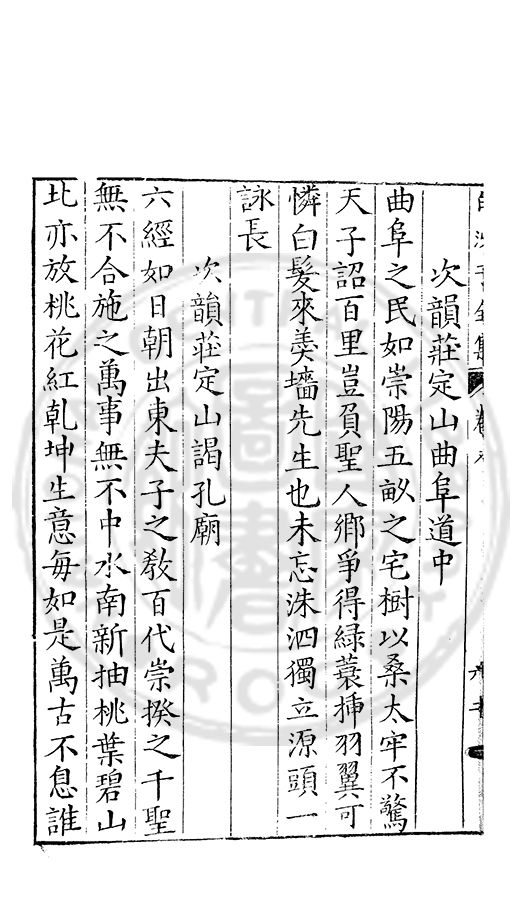 次韻莊定山曲阜道中
曲阜之民如崇陽五畝之宅樹以桑太牢不驚
天子詔百里豈負聖人鄉爭得緑蓑揷羽翼可
憐白髮來羮墻先生也未忘洙泗獨立源頭一
詠長
次韻莊定山謁孔廟
六經如日朝出東夫子之敎百代崇揆之千聖
無不合施之萬事無不中水南新抽桃葉碧山
北亦放桃花紅乾坤生意每如是萬古不息誰